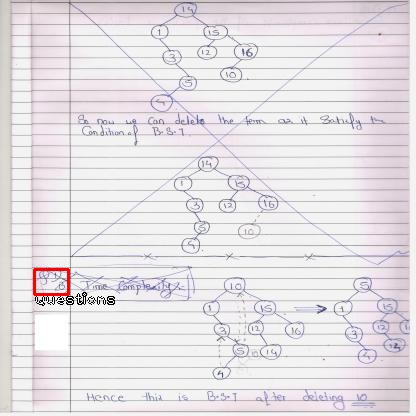 14
1 15
3 12 16
5 10
4
So now we can delete the term as it satisfy the
Condition of B.S.T.
14
1 15
3 12 16
5 10
4
Time Complexity:
questions
10 5
1 15 1 15
3 12 16 3 12
5 14 4
4
Hence this is B.S.T after deleting 10